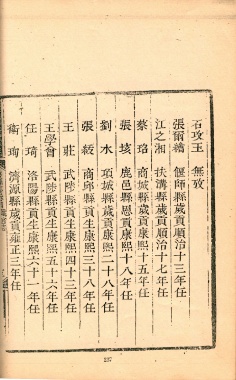 石攻玉 無攷
張爾繪 偃師縣歲貢順治十三年任
江之湘 扶溝縣歲貢順治十七年任
蔡珞 商城縣歲貢康熙十五年任
張垓 鹿邑縣恩貢康熙十八年任
劉水 項城縣歲貢康熙二十八年任
張紋 商邱縣貢生康熙三十八年任
王莊 武陟縣貢生康熙四十三年任
王學曾 武陟縣貢生康熙五十六年任
任琦 洛陽縣貢生康熙六十一年任
衛珣 濟源縣歲貢雍正二年任
237